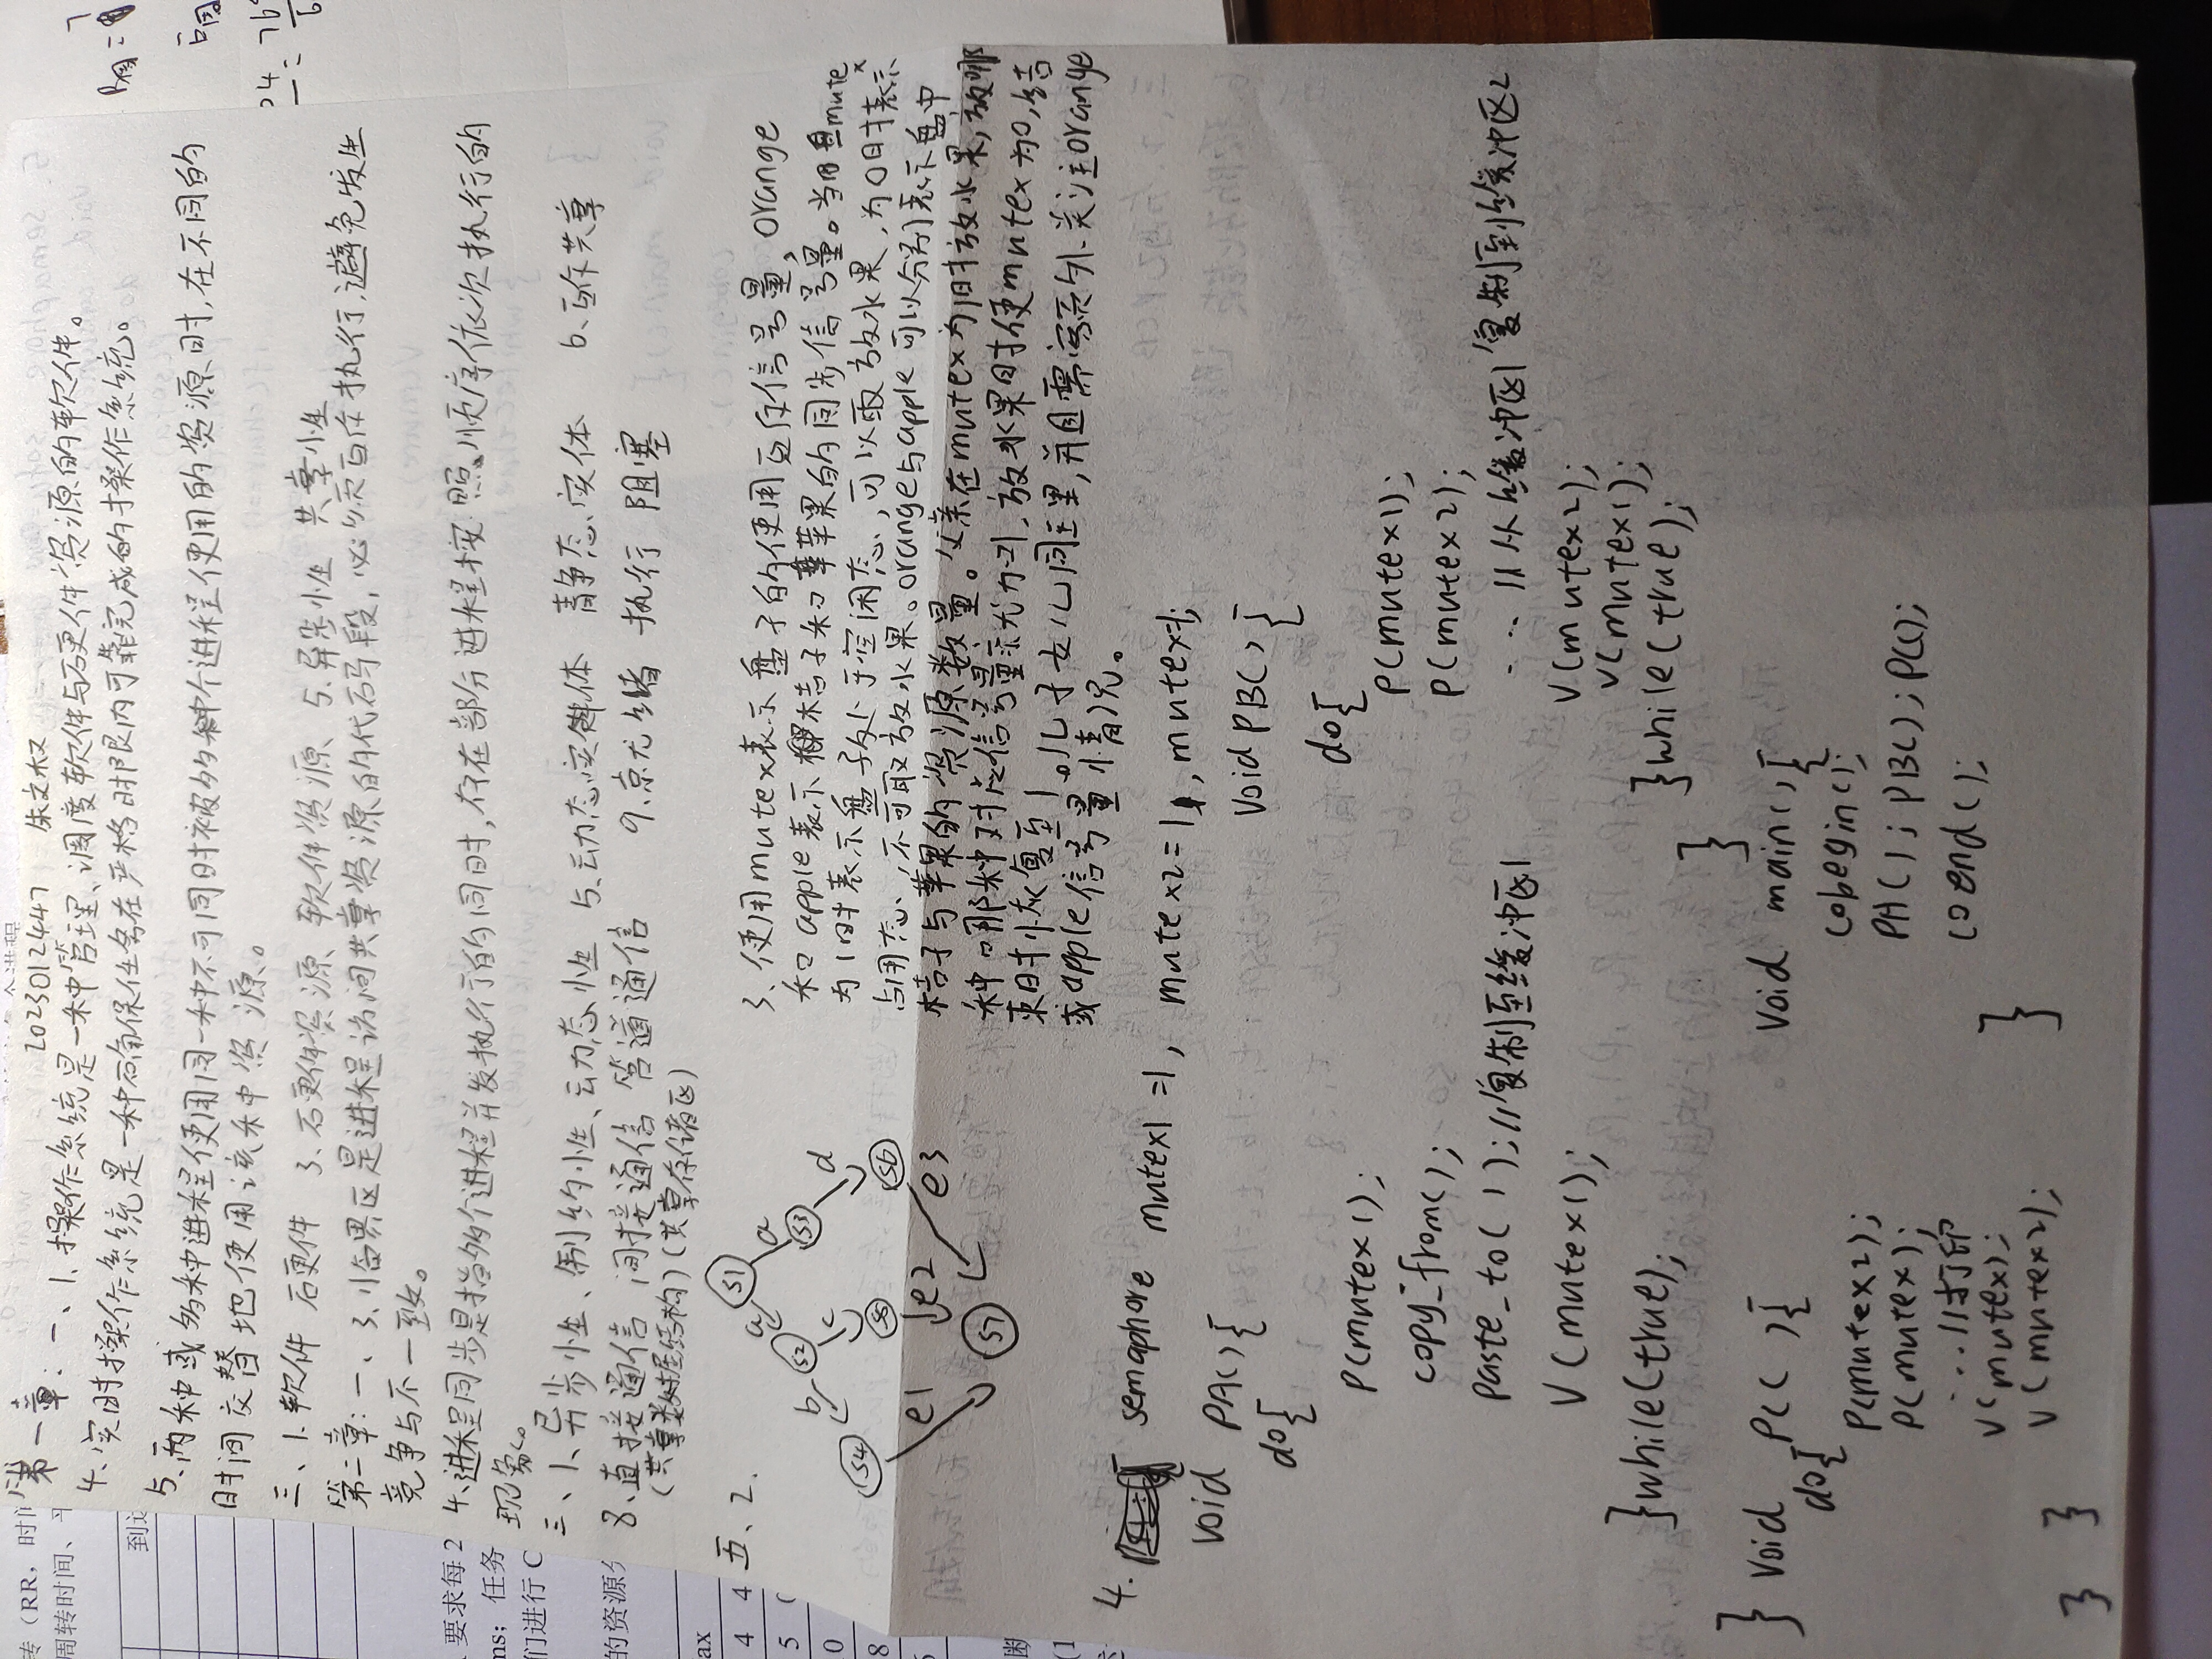 第一章：一、1.操作系统是一种管理、调度软件与硬件资源的软件。
2023012447 朱文权
4.实时操作系统是一种确保任务在严格时限内可靠完成的操作系统。
5.两种或多种进程使用同一种不可同时被多个进程使用的资源时,在不同的
时间交替地使用该种资源。
三、1.软件 硬件 3.硬件资源、软件资源 5.异步性 共享性
第二章:一、3.临界区是进程访问共享资源的代码段,必须互斥执行,避免发生
竞争与不一致。
4.进程同步是指多个进程并发执行的同时,存在部分进程按照顺序依次执行的
现象。
三、1.异步性、制约性、动态性 5.动态实体 静态实体 6.互斥共享
8.直接通信 间接通信 管道通信 9.就绪 执行 阻塞
(共享数据结构)(共享存储区)
五、2.
S1
a a
S2 S3
b c d
S4 S5 S6
e1 e2 e3
S7
3.使用mutex表示盘子的使用互斥信号量, orange
和apple表示桔子和苹果的同步信号量。当mutex
为1时表示盘子处于空闲态,可以取放水果,为0时表示
占用态,不可取放水果。orange与apple可以分别表示盘中
桔子与苹果的资源数量。父亲在mutex为1时放水果,放哪
种哪种对应信号量就为1,放水果时使mutex为0,结
束时恢复至1。儿子女儿同理,并且需额外关注orange
或apple信号量情况。
4. semaphore mutex1=1, mutex2=1, mutex=1;
void PA(){
do{
P(mutex1);
copy_from();
paste_to( );//复制至缓冲区1
V(mutex1);
}while(true);
}
void PB(){
do{
P(mutex1);
P(mutex2);
... //从缓冲区1复制到缓冲区2
V(mutex2);
V(mutex1);
}while(true);
}
void PC(){
do{
P(mutex2);
P(mutex);
...//打印
V(mutex);
V(mutex2);
}
}
void main(){
cobegin();
PA(); PB(); PC();
coend();
}
转(RR,时间
周转时间、平
到达
要求每2
ms; 任务
们进行C
的资源分
ax
4 4
5
0
8